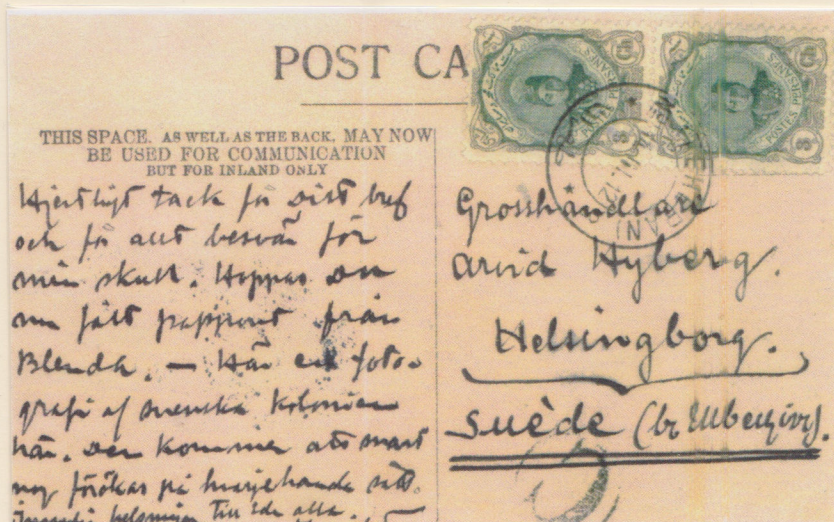 POST CA
THIS SPACE, AS WELL AS THE BACK, MAY NOW
BE USED FOR COMMUNICATION
BUT FOR INLAND ONLY
Hjertligt tack för sist bref
och för allt besvär för
min skull. Hoppas du
nu fått rapport från
Blenda. — Här en foto-
grafi af svenska kolonien
här. Den kommer att snart
nog förökas på hvarjehanda sätt.
helsningar till Eder alla.
Grosshandlare
Arvid Nyberg.
Helsingborg.
Suède
TEHERAN